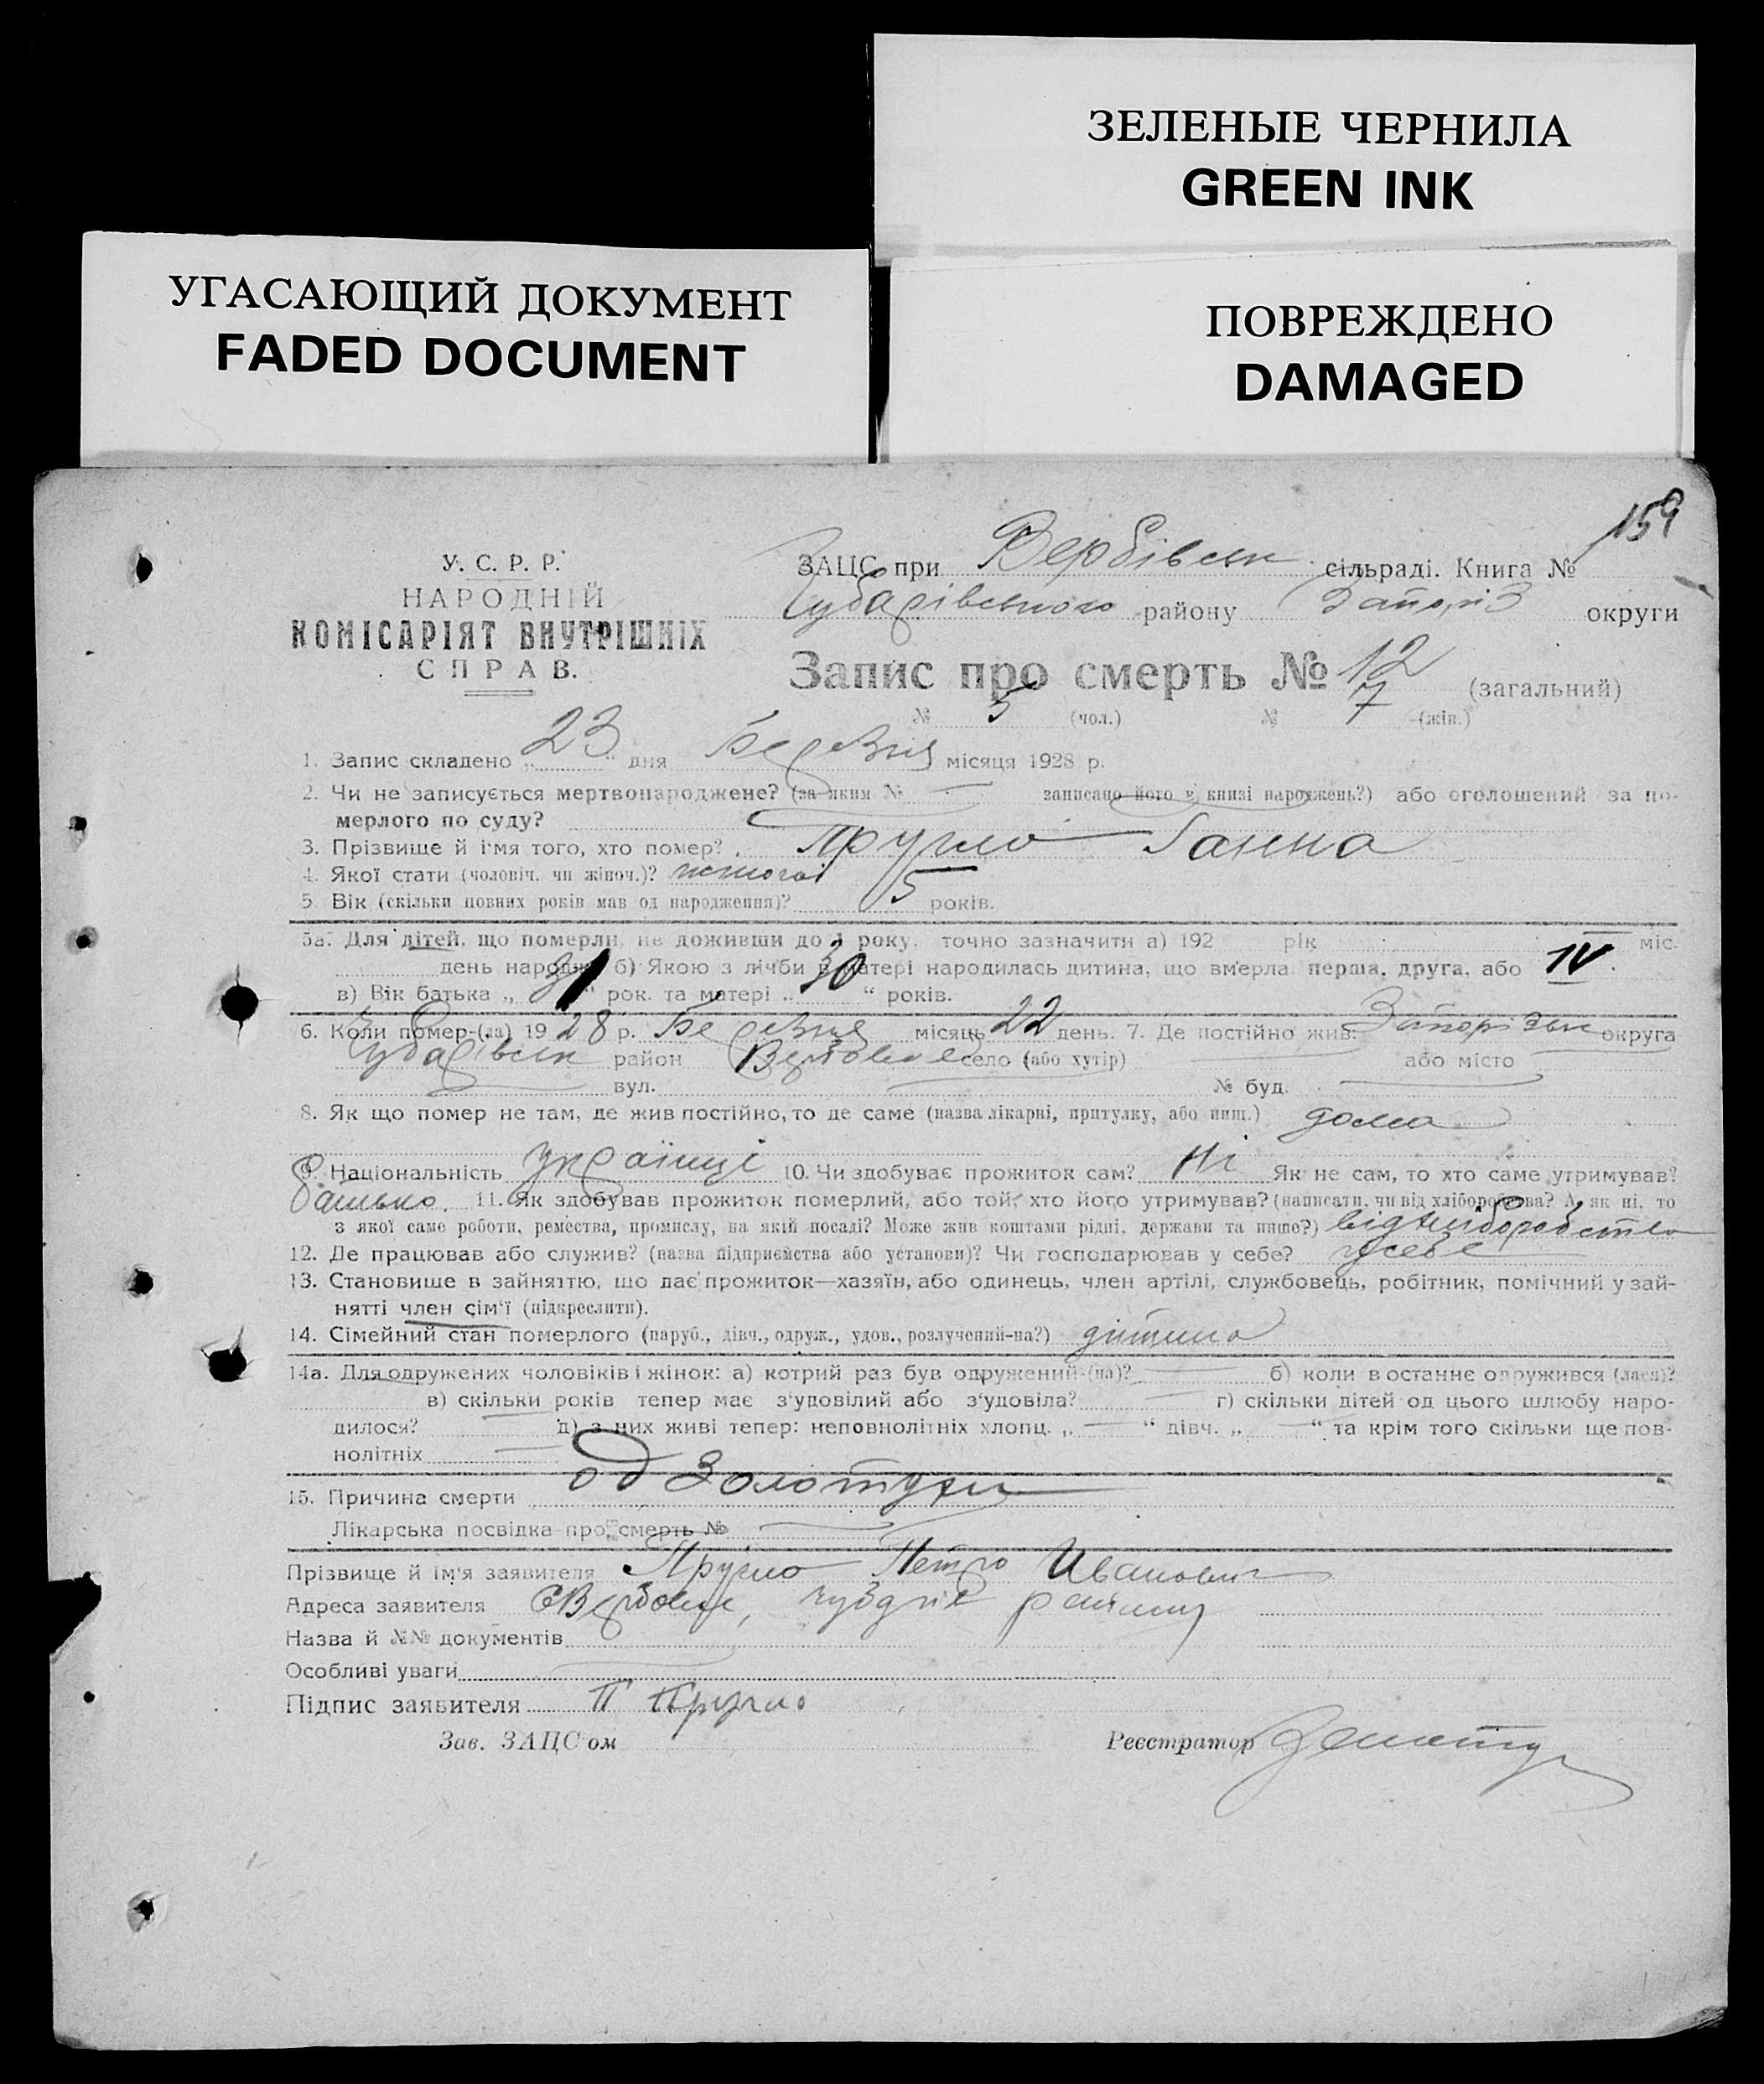 ЗЕЛЕНЫЕ ЧЕРНИЛА
GREEN INK
УГАСАЮЩИЙ ДОКУМЕНТ
FADED DOCUMENT
ПОВРЕЖДЕНО
DAMAGED
159
У. С. Р. Р.
НАРОДНІЙ
КОМІСАРІЯТ ВНУТРІШНІХ
СПРАВ.
ЗАЦС при Вербівськ сільраді. Книга №
Чубарівського району Запоріз округи
Запис про смерть № 12 (загальний)
№ 5 (чол.) № 7 (жін.)
1. Запис складено „ 23 “ дня Березня місяця 1928 р.
2. Чи не записується мертвонароджене? (за яким № записано його в книзі народжень?) або оголошений за по-
мерлого по суду?
3. Прізвище й ім'я того, хто помер? Ганна
4. Якої стати (чоловіч. чи жіноч.)? жіночої
5. Вік (скільки повних років мав од народження)? 5 років.
5а. Для дітей, що померли, не доживши до 1 року, точно зазначити а) 192 рік міс.
день народж. б) Якою з лічби в матері народилась дитина, що вмерла: перша, друга, або IV.
в) Вік батька „ 31 “ рок. та матері „ 30 “ років.
6. Коли помер-(ла) 1928 р. Березня місяць 22 день. 7. Де постійно жив: Запорізьк округа
Чубарівськ район Вербове село (або хутір) або місто
вул. № буд.
8. Як що помер не там, де жив постійно, то де саме (назва лікарні, притулку, або инш.) дома
9. Національність українці 10. Чи здобуває прожиток сам? Ні Як не сам, то хто саме утримував?
батько. 11. Як здобував прожиток померлий, або той, хто його утримував? (написати, чи від хліборобства? А як ні, то
з якої саме роботи, ремества, промислу, на якій посаді? Може жив коштами рідні, держави та инше?) від хліборобства
12. Де працював або служив? (назва підприємства або установи)? Чи господарював у себе? у себе
13. Становище в зайняттю, що дає прожиток—хазяїн, або одинець, член артілі, службовець, робітник, помічний у зай-
нятті член сім'ї (підкреслити).
14. Сімейний стан померлого (паруб., дівч., одруж., удов., розлучений-на?) дитина
14а. Для одружених чоловіків і жінок: а) котрий раз був одружений-(на)? б) коли востаннє одружився (лася)?
в) скільки років тепер має з'удовілий або з'удовіла? г) скільки дітей од цього шлюбу наро-
дилося? д) з них живі тепер: неповнолітніх хлопц. „ “ дівч. „ “ та крім того скільки ще пов-
нолітніх
15. Причина смерти од Золотухи
Лікарська посвідка про смерть №
Прізвище й ім'я заявителя Петро Иванович
Адреса заявителя С Вербове, району
Назва й №№ документів
Особливі уваги
Підпис заявителя П
Зав. ЗАЦС'ом Реєстратор